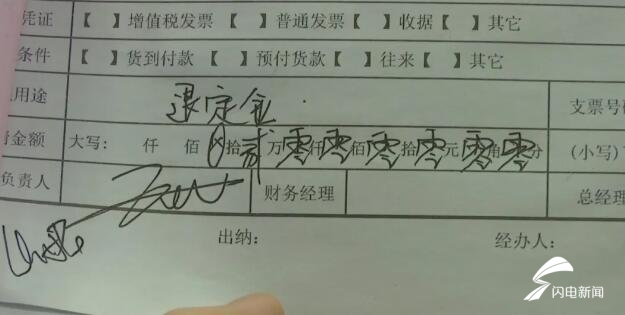 凭证 【 】增值税发票 【 】普通发票 【 】收据 【 】其它
条件 【 】货到付款 【 】预付货款 【 】往来 【 】其它
用途 退定金 支票号
金额 大写: 仟 佰 ⊗拾 贰万 零仟 零佰 零拾 零元 零角 零分 (小写)
负责人 财务经理 总经理
出纳: 经办人:
闪电新闻